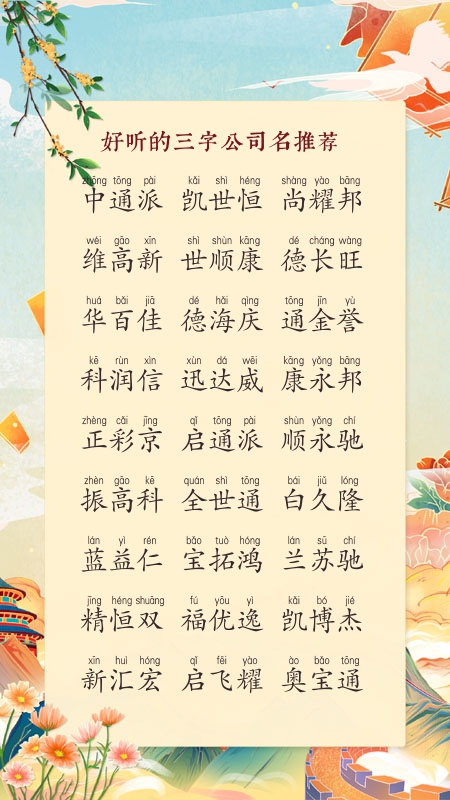 好听的三字公司名推荐
zhōng tōng pài kǎi shì héng shàng yào bāng
中通派 凯世恒 尚耀邦
wéi gāo xīn shì shùn kāng dé cháng wàng
维高新 世顺康 德长旺
huá bǎi jiā dé hǎi qìng tōng jīn yù
华百佳 德海庆 通金誉
kē rùn xìn xùn dá wēi kāng yǒng bāng
科润信 迅达威 康永邦
zhèng cǎi jīng qǐ tōng pài shùn yǒng chí
正彩京 启通派 顺永驰
zhèn gāo kē quán shì tōng bái jiǔ lóng
振高科 全世通 白久隆
lán yì rén bǎo tuò hóng lán sū chí
蓝益仁 宝拓鸿 兰苏驰
jīng héng shuāng fú yōu yì kǎi bó jié
精恒双 福优逸 凯博杰
xīn huì hóng qǐ fēi yào ào bǎo tōng
新汇宏 启飞耀 奥宝通